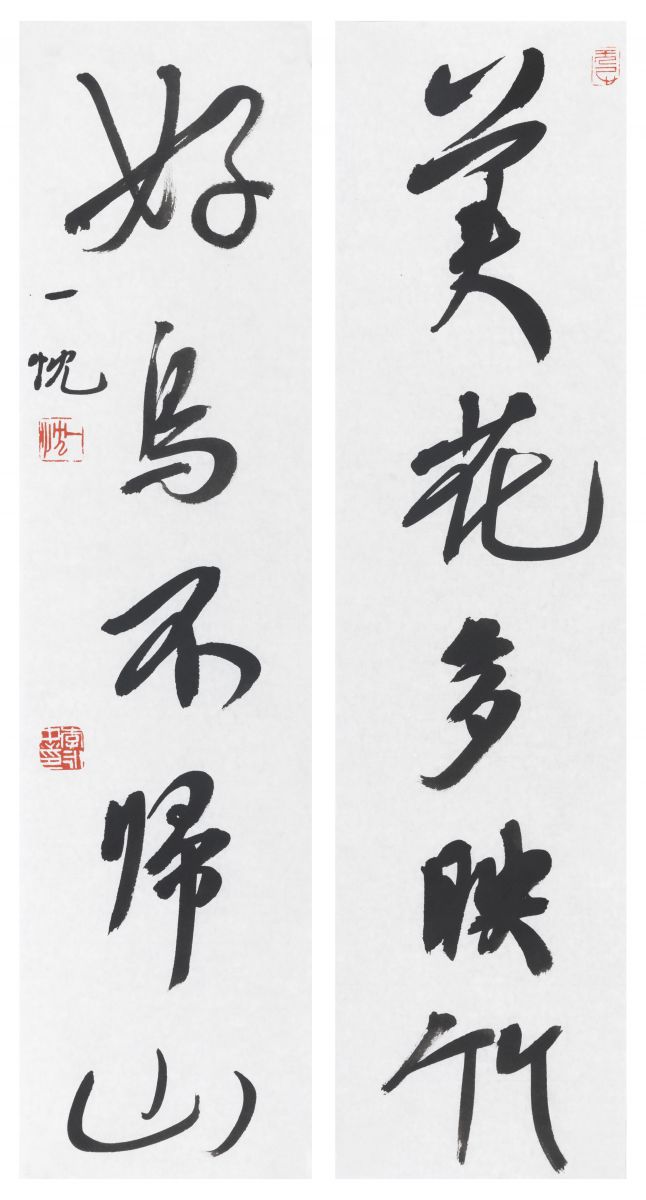 美花多映竹
好鳥不歸山
一忱